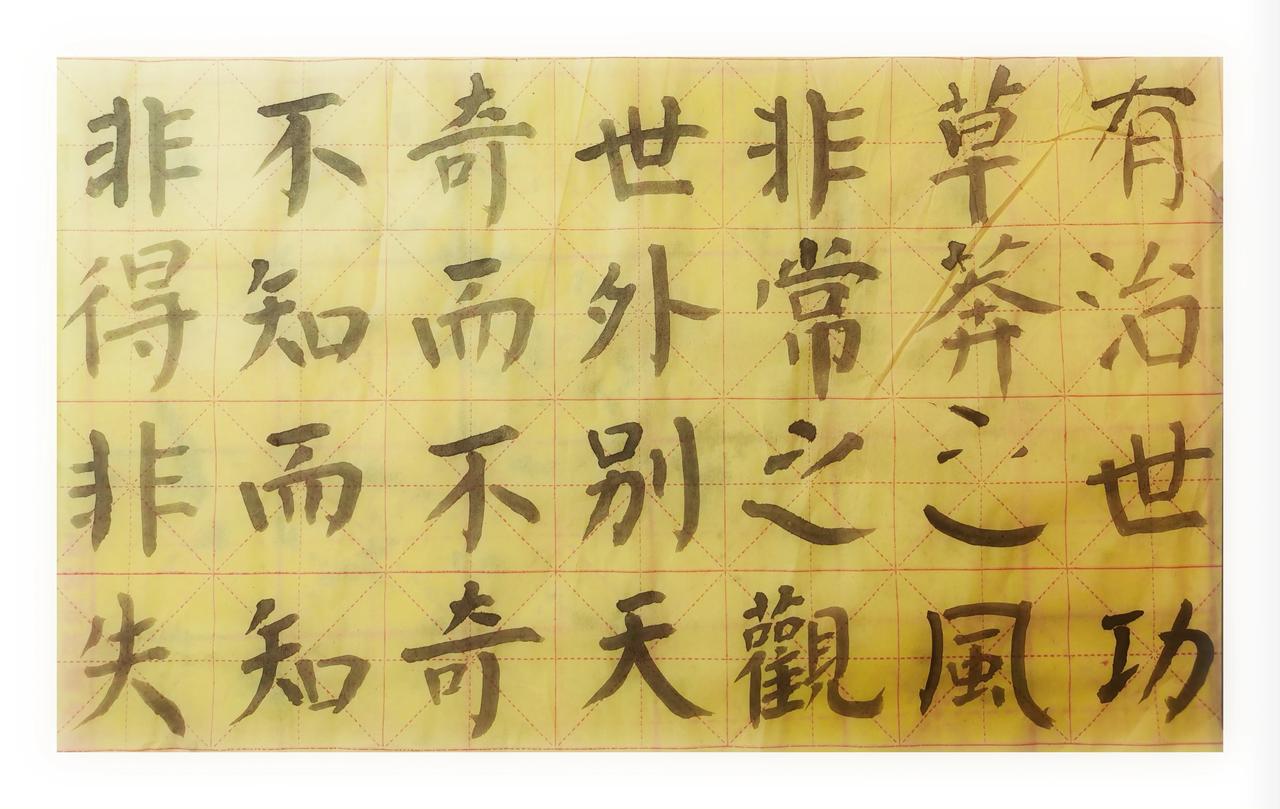 有治世功
草莽之風
非常之觀
世外别天
奇而不奇
不知而知
非得非失